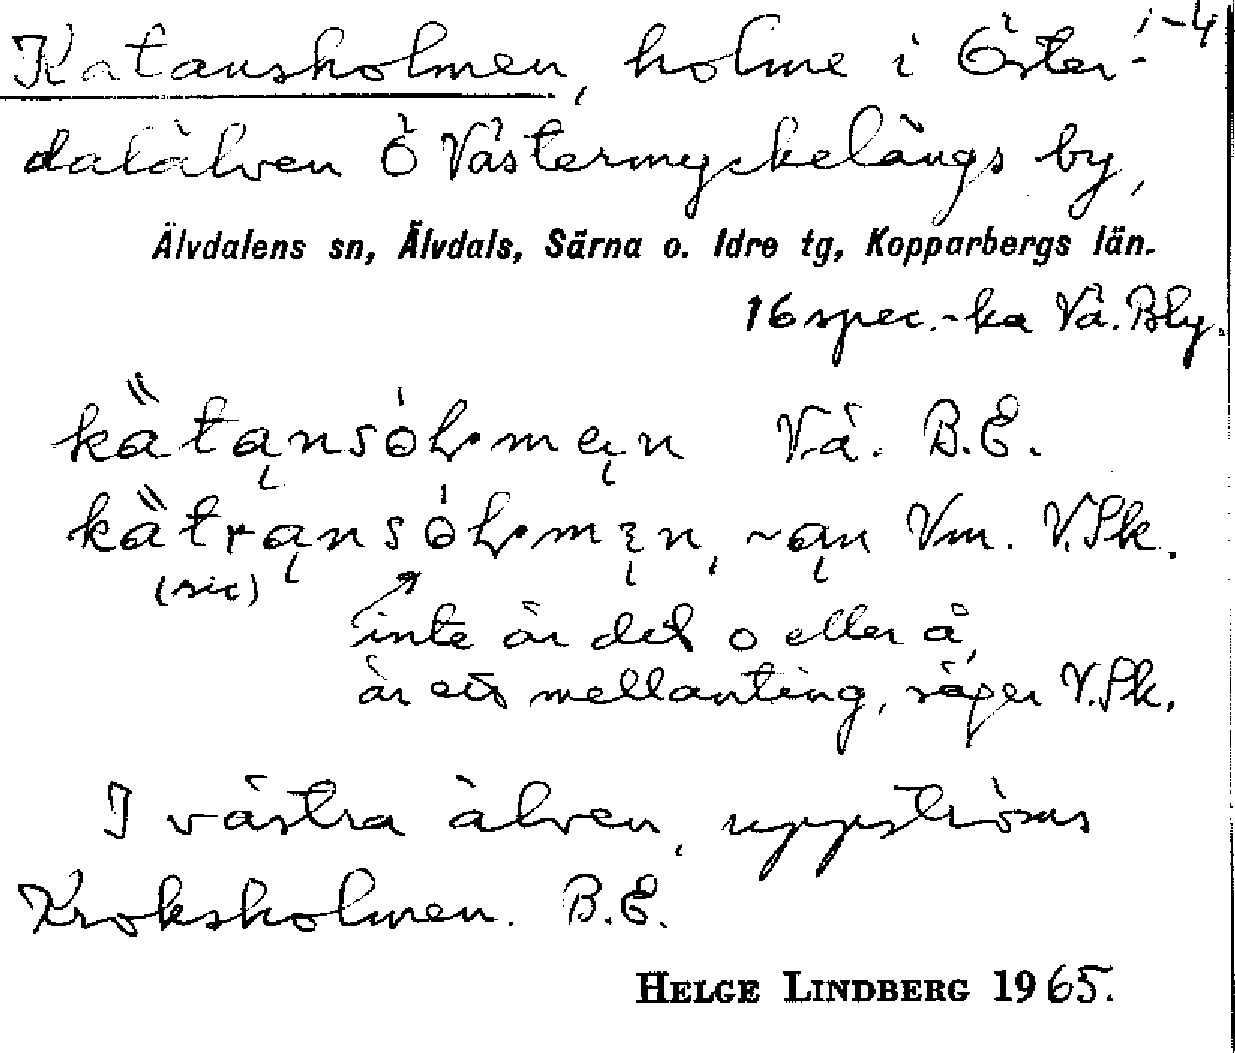 Katansholmen, holme i Öster- i-4
dalälven Ö Västermyckelängs by,
Älvdalens sn, Älvdals, Särna o. Idre tg, Kopparbergs län.
16 spec.-ka Vä. Bly.
kätąnsólmęn Vä. B.E.
kätrąnsólmįn, ~ąn Vm. V.Sk.
(sic)
inte är det o eller å,
är ett mellanting, säger V.Sk.
I västra älven, uppströms
Kroksholmen. B.E.
HELGE LINDBERG 1965.